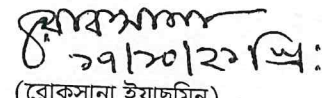 রোকসানা
১৭/১০/২১ খ্রি:
(রোকসানা ইয়াছমিন)